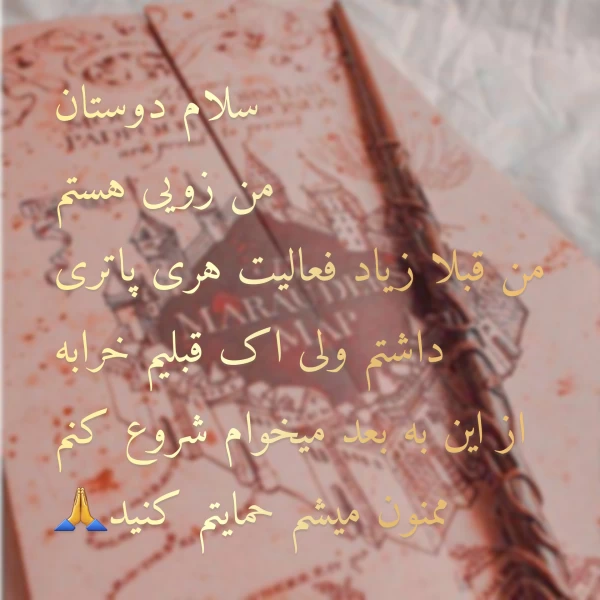 سلام دوستان
من زویی هستم
من قبلا زیاد فعالیت هری پاتری
داشتم ولی اک قبلیم خرابه
از این به بعد میخوام شروع کنم
ممنون میشم حمایتم کنید🙏
MARAUDER
MAP